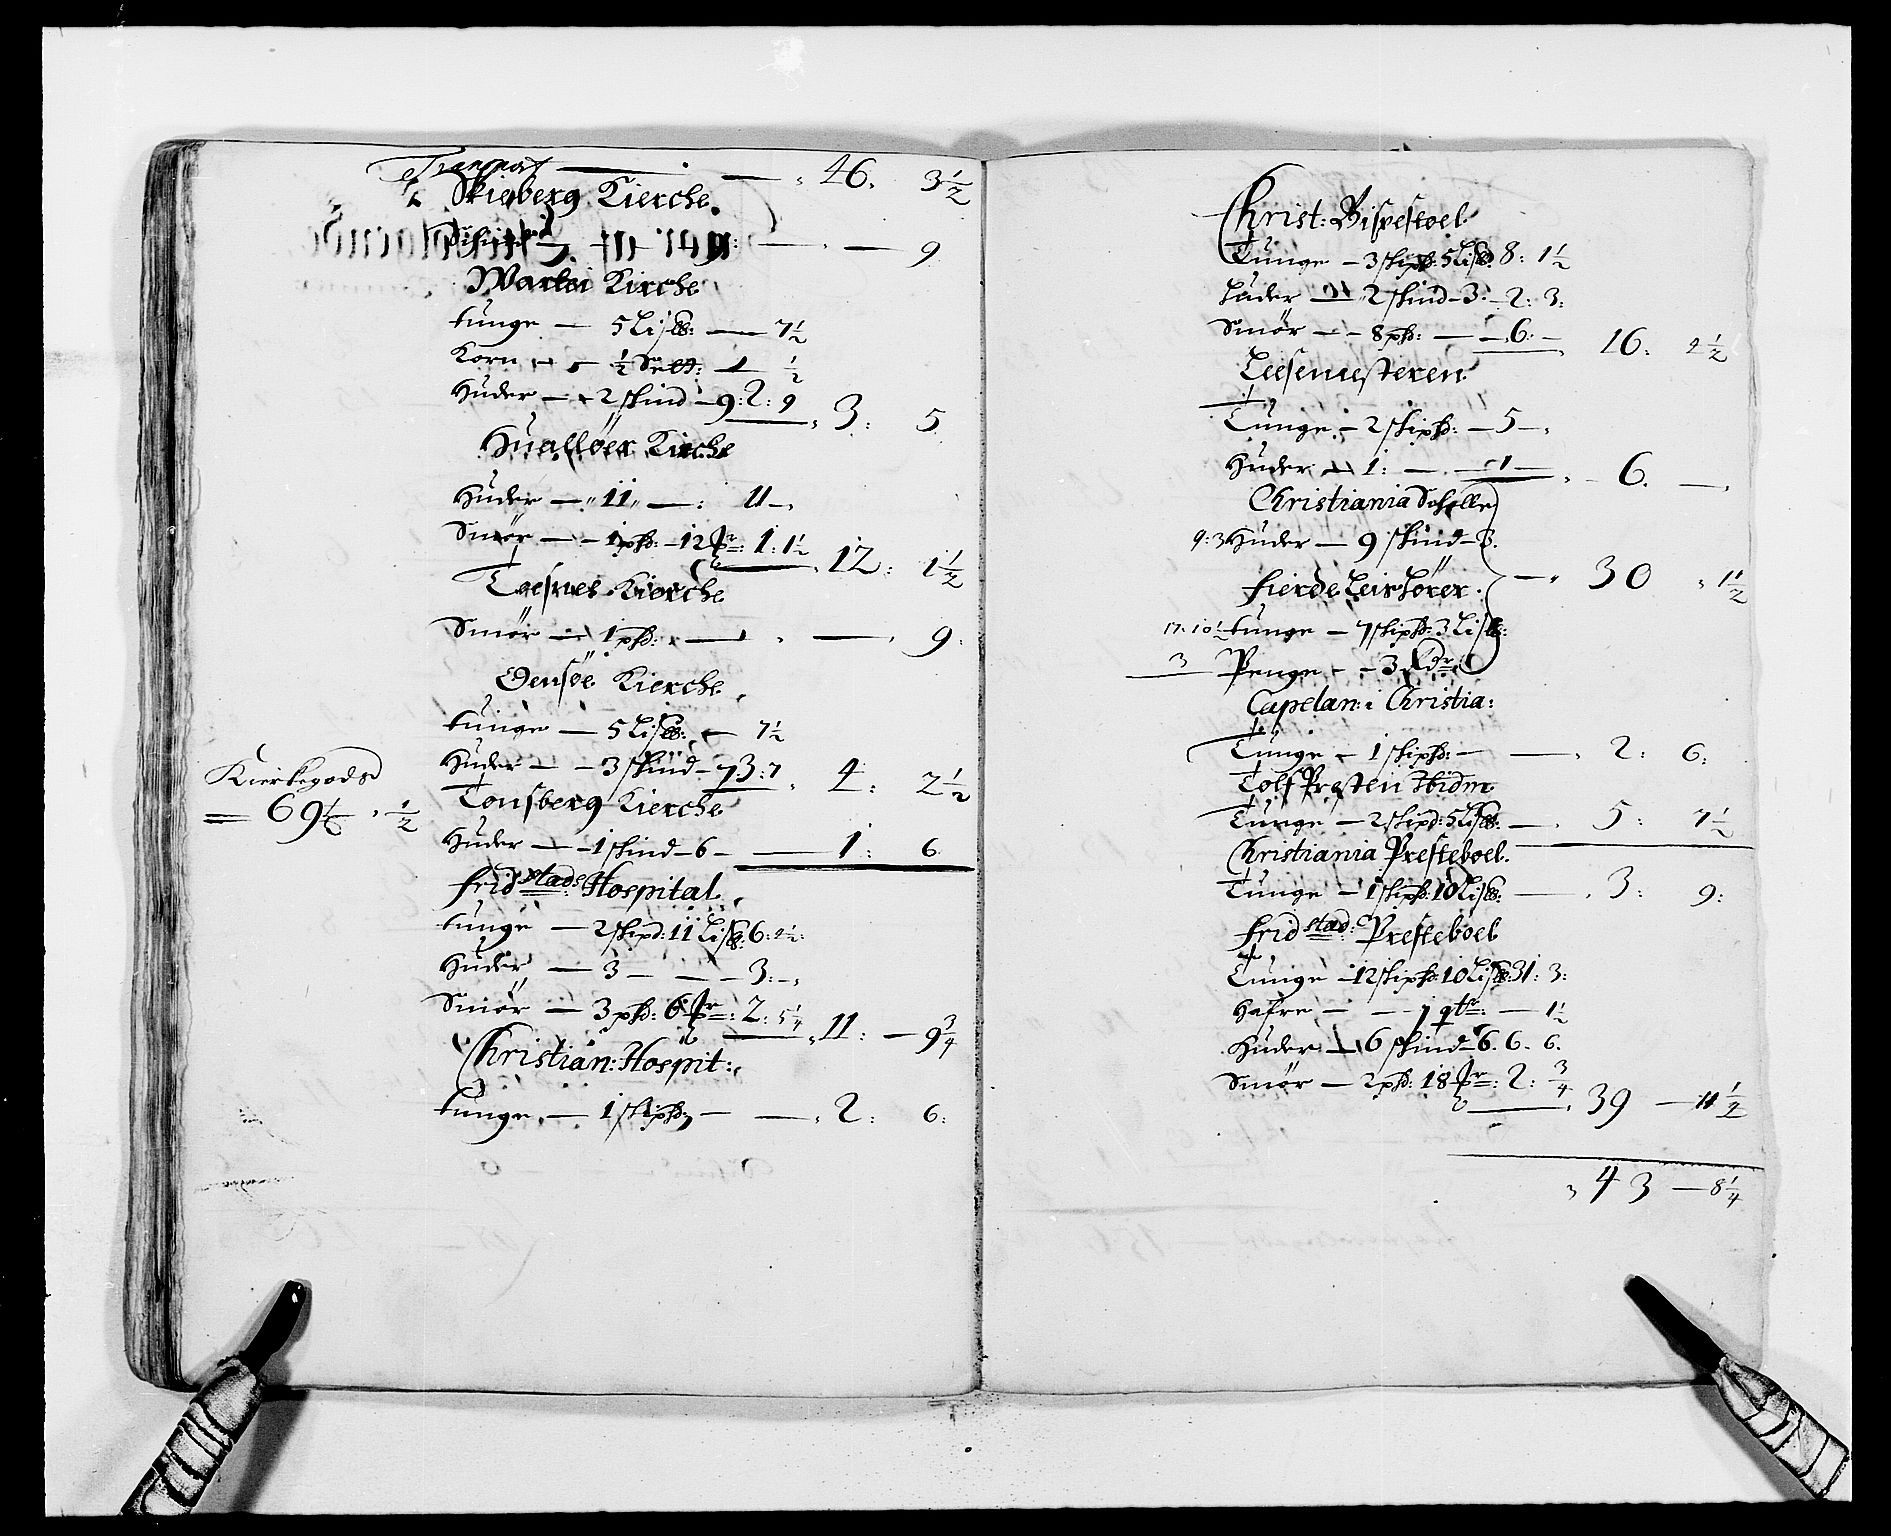 Transport — 46. 3½
Skieberg Kierche.
9
Wartei Kirche
tunge — 5 Lis℔: — 7½
Korn — ½ Sett: — ½
Huder — 2 skind — 9: 2: 9 3: 5
Huallöer Kirche
Huder — 11 — : 11 —
Smör — 1 pd: — 12 : 1: 1½ 12: 1½
Kierche
Smör — 1 pd: — 9:
Oensöe Kierche
tunge — 5 Lis℔: — 7½
Huder — 3 skind — 3: 7 4: 2½
Tonsberg Kierche
Kierkegods
= 69 ½
Huder — 1 skind — 6 — 1: 6
fridstads Hospital
tunge — 2 skipd: 11 Lis℔: 6: 4½:
Huder — 3 — 3: —
Smör — 3 pd: 6 : 2: 5¼ 11: — 9¾
Christian: Hospit:
tunge — 1 skipd: — 2: 6:
Christ: Bispestoel
Tunge — 3 skipd: 5 Lis℔ 8: 1½
Huder — 2 skind — 3: — 2: 3:
Smör — 8 pd: — 6: — 16: 4½
Leesemesteren
Tunge — 2 skipd: — 5 —
Huder — 1: — 1 — 6. —
Christiania Scholle
9: 3 Huder — 9 skind — 3.
fierde Leir hörer. — 30 1½
17: 10½ tunge — 7 skipd: 3 Lis℔:
3 Penge — 3
Capelan: i Christia:
Tunge — 1 skipd: — 2: 6:
Tolf Præsten
Tunge — 2 skipd: 5 Lis℔: — 5: 7½
Christiania Presteboel.
Tunge — 1 skipd: 10 Lis℔: — 3: 9:
fridstad: Presteboel
Tunge — 12 skipd: 10 Lis℔: 31: 3:
Hafre — 1 qtr: — 1½
Huder — 6 skind — 6. 6. 6.
Smör — 2 pd: 18 : 2: ¾ 39 — 11¼
43 — 8¼